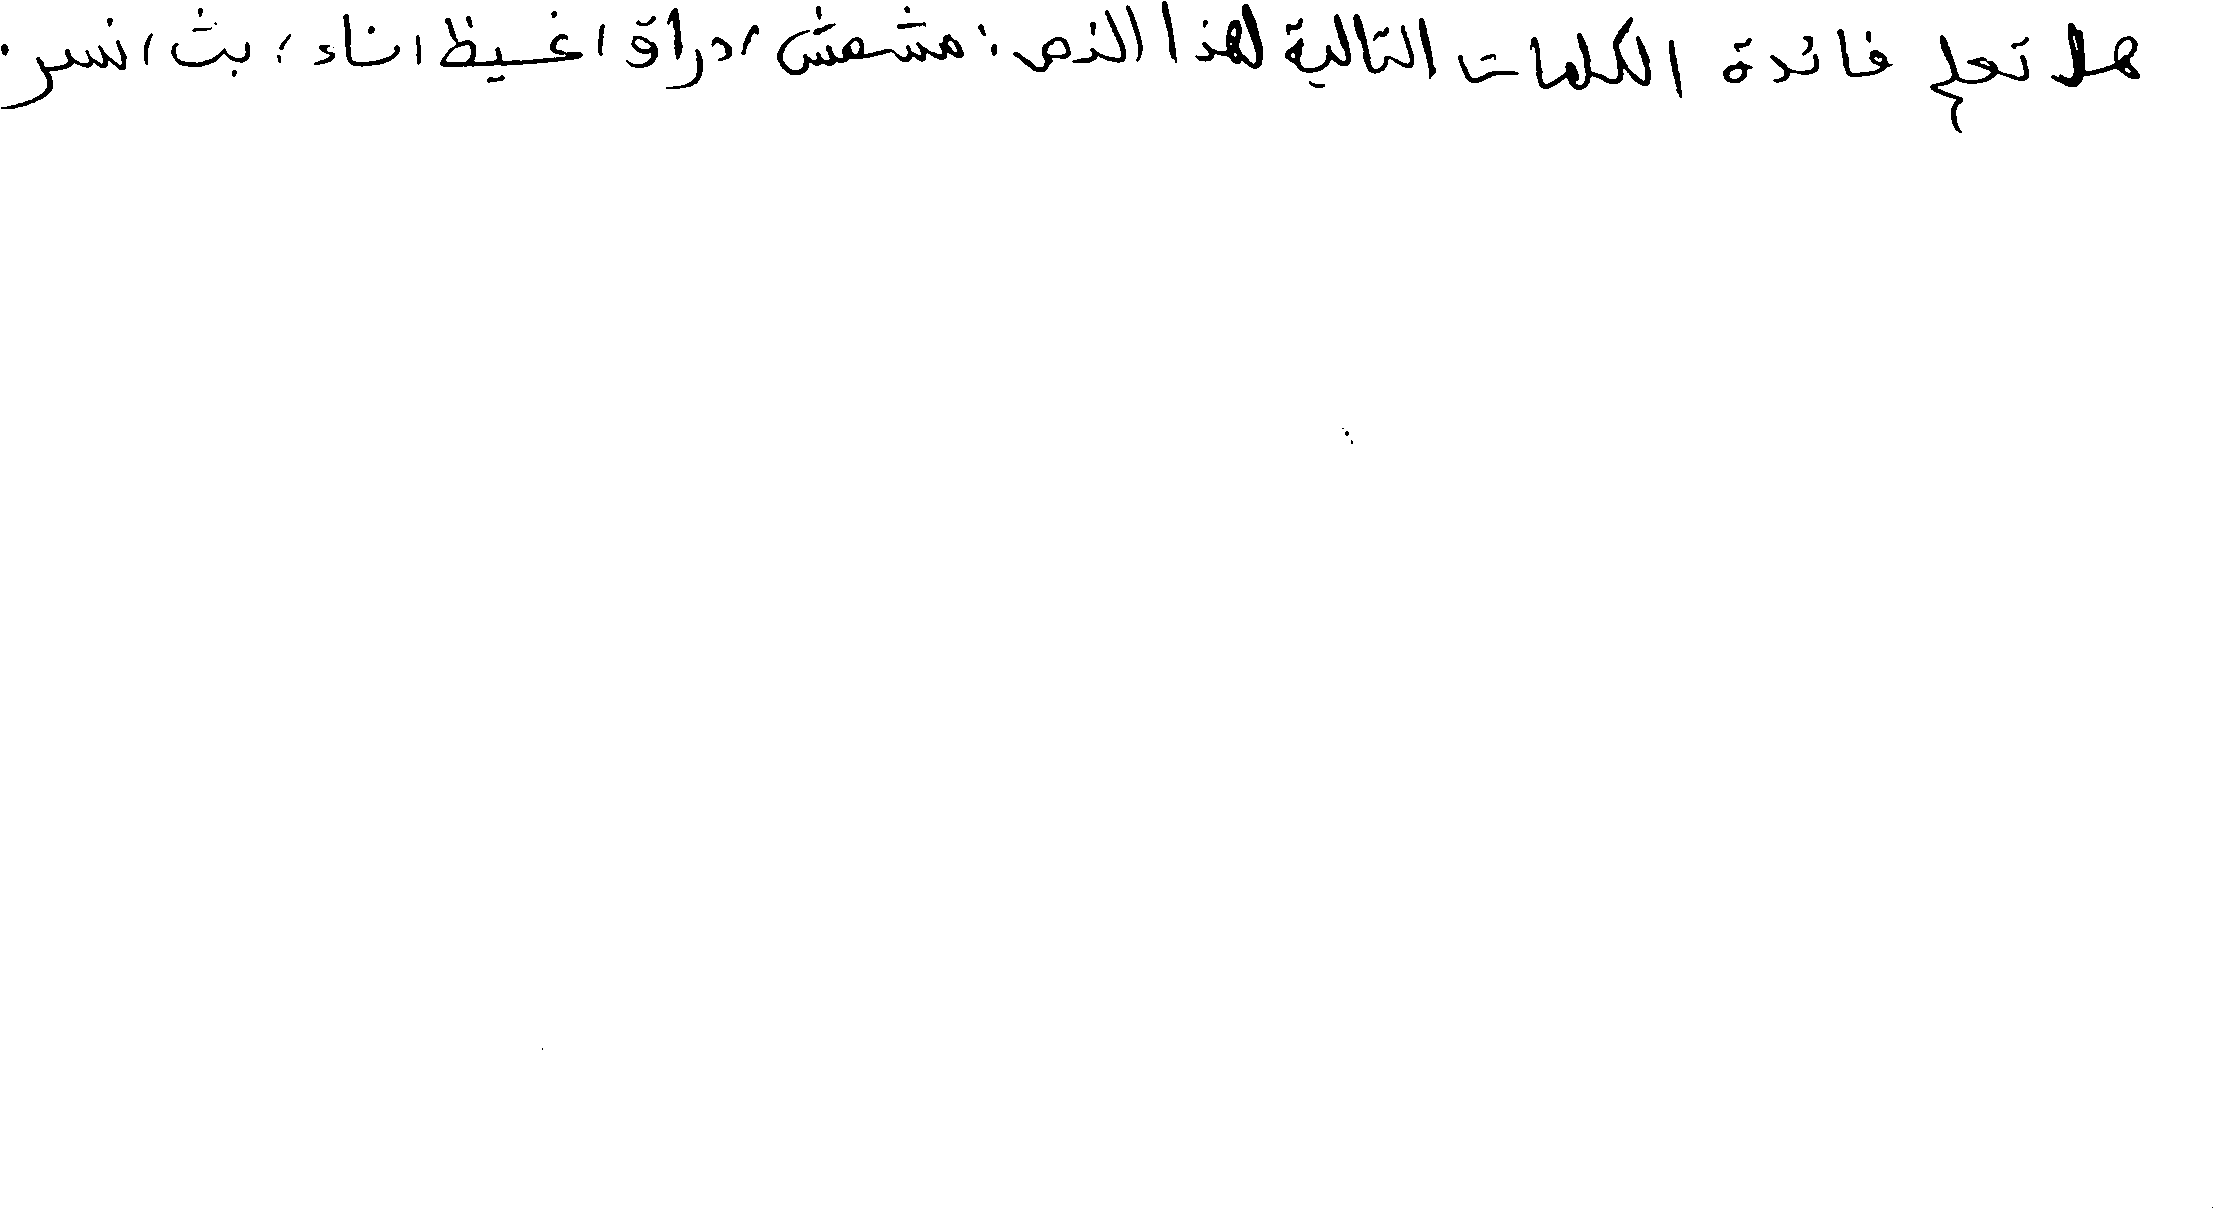 هل تعلم فائدة الكلمات التالية لهذا النص: مشمش، دراق، غيظ، ناء، بث، نسر.